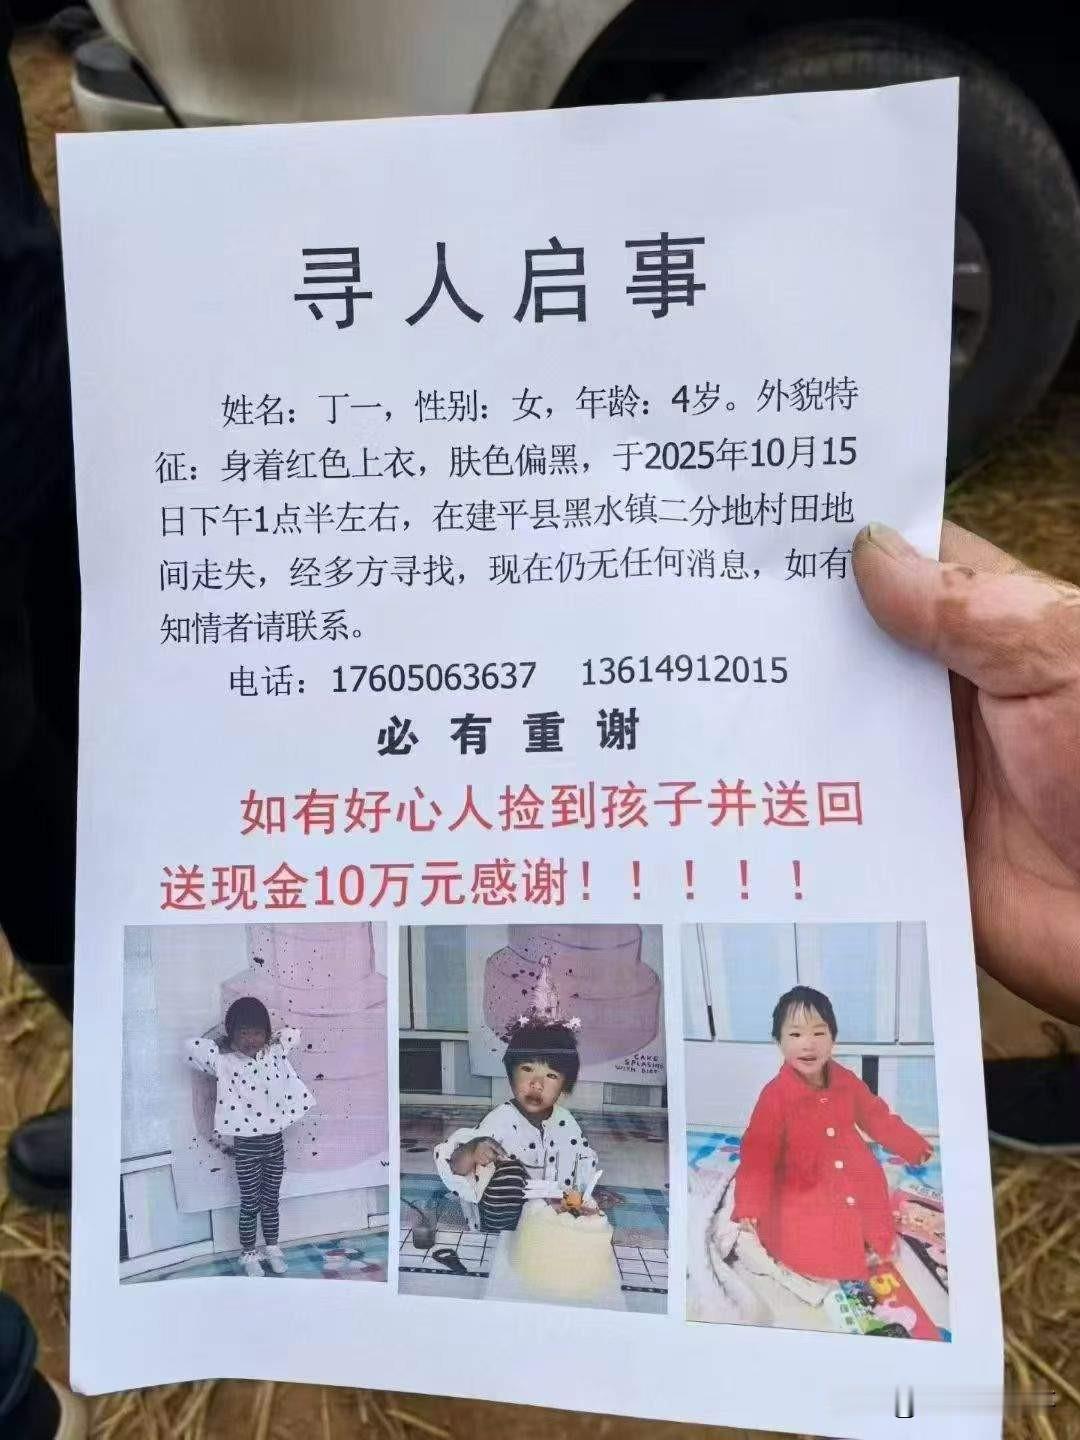 寻人启事
姓名：丁一，性别：女，年龄：4岁。外貌特
征：身着红色上衣，肤色偏黑，于2025年10月15
日下午1点半左右，在建平县黑水镇二分地村田地
间走失，经多方寻找，现在仍无任何消息，如有
知情者请联系。
电话：17605063637 13614912015
必有重谢
如有好心人捡到孩子并送回
送现金10万元感谢！！！！！
CAKE
SPLASHING
WITH DIRT